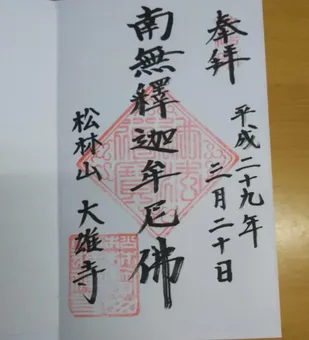 奉拜
平成二十九年
三月二十日
南無釋迦牟尼佛
松林山 大雄寺